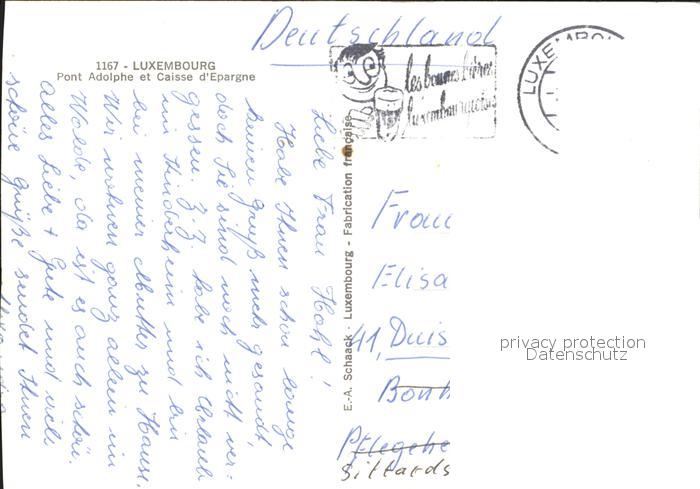 Deutschland
1167 - LUXEMBOURG
Pont Adolphe et Caisse d'Epargne
les bonnes bières
luxembourgeoises
LUXEMBOU
Liebe Frau Hohl!
Habe Ihnen schon lange
keinen Gruß mehr gesandt,
doch Sie sind noch nicht ver-
gessen. Z.Z. habe ich Urlaub
im Kinderheim und bin
bei meiner Mutter zu Hause.
Wir wohnen ganz allein im
Walde, da ist es auch schön.
Alles Liebe + Gute und viele
schöne Grüße sendet Ihnen
E.-A. Schaack - Luxembourg - Fabrication française
Frau
Elisa
41, Duis
Bonh
Pflegehe
Sittards
privacy protection
Datenschutz